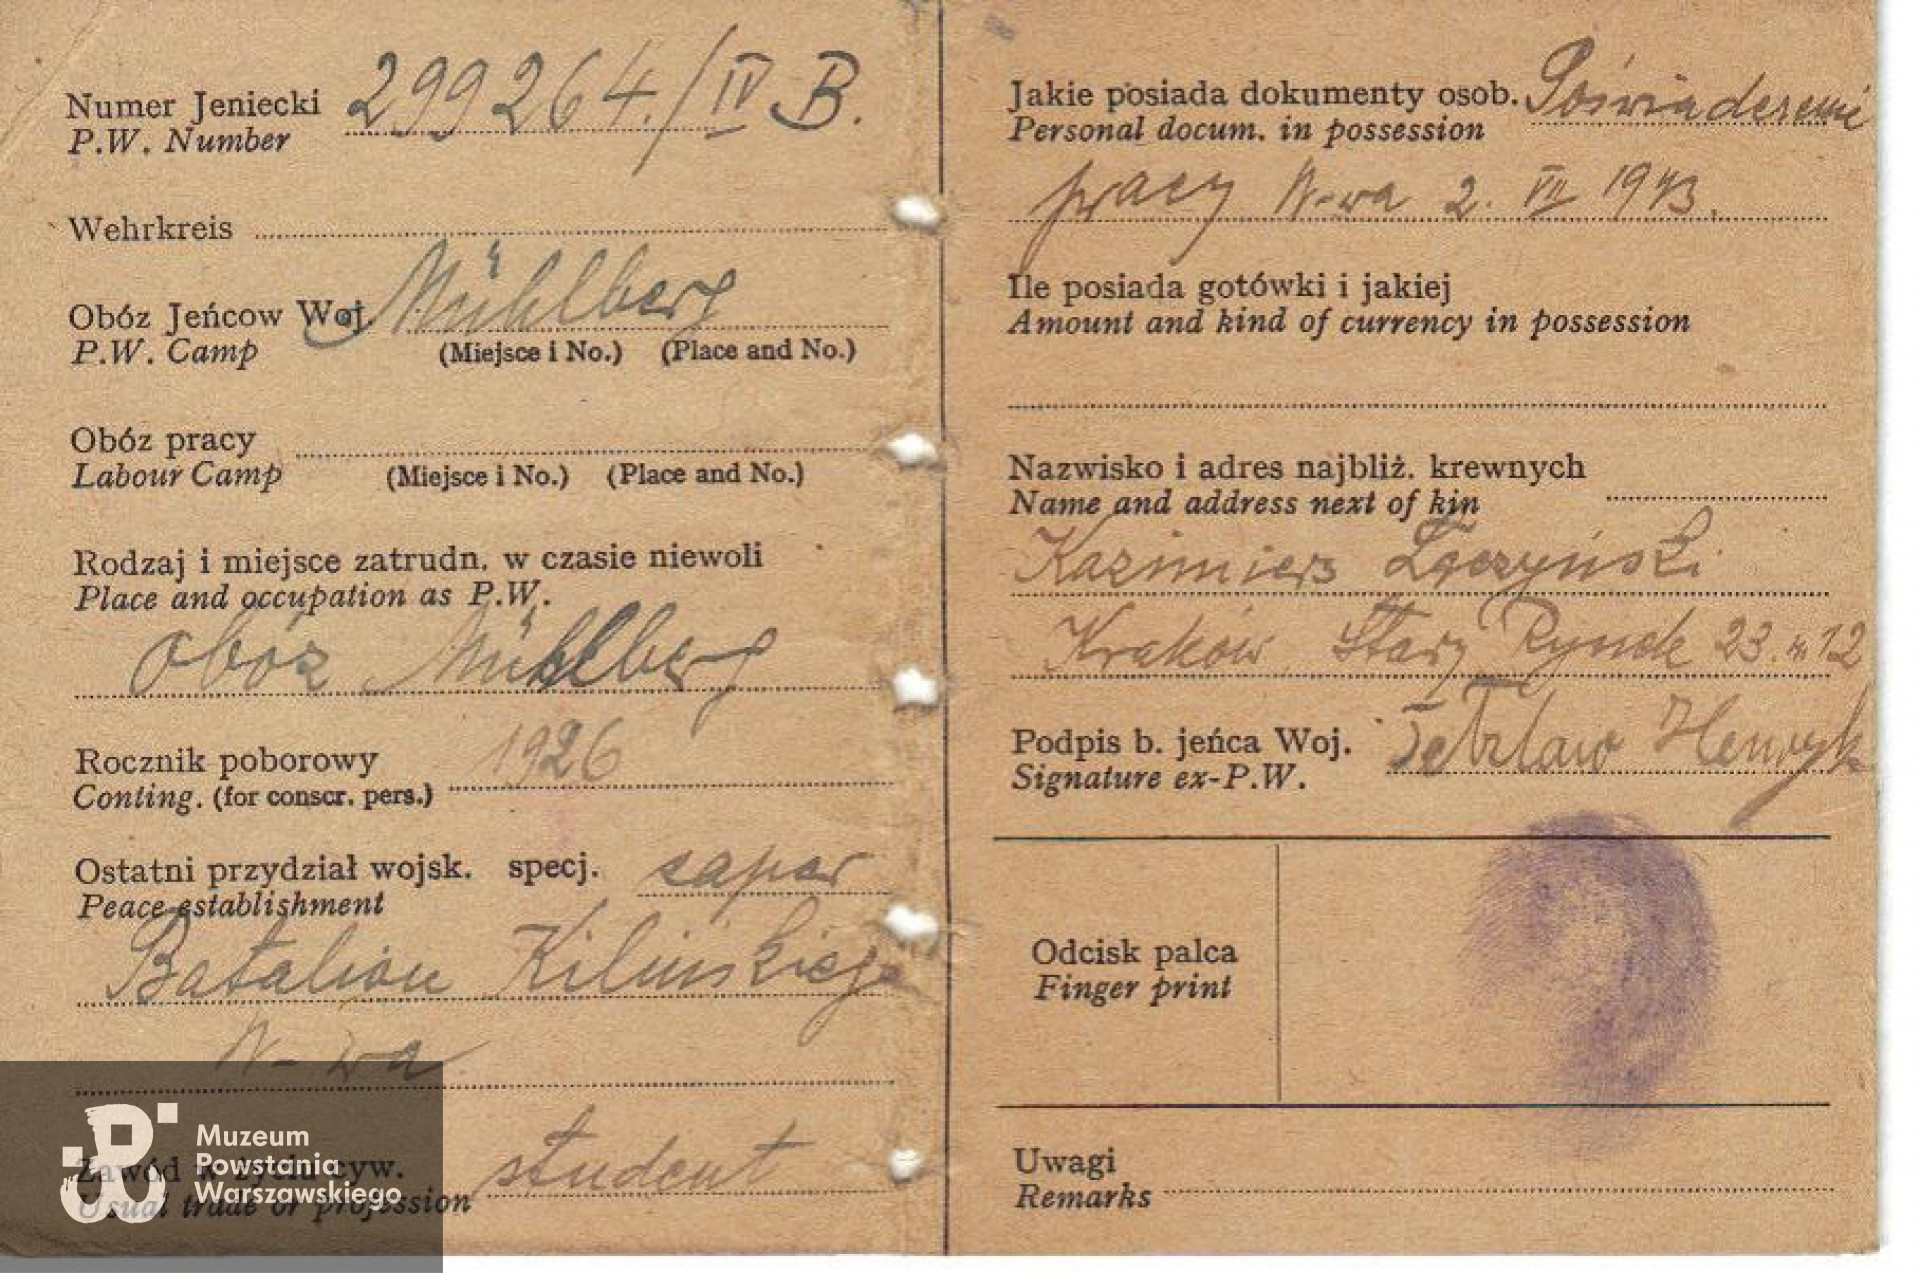 Numer Jeniecki 299264./IV B.
P.W. Number
Wehrkreis
Obóz Jeńcow Woj. Mühlberg
P.W. Camp (Miejsce i No.) (Place and No.)
Obóz pracy
Labour Camp (Miejsce i No.) (Place and No.)
Rodzaj i miejsce zatrudn. w czasie niewoli
Place and occupation as P.W.
Obóz Mühlberg
Rocznik poborowy 1926
Conting. (for conscr. pers.)
Ostatni przydział wojsk. specj. saper
Peace establishment
Batalion Kilińskiego
W-wa
Zawód w życiu cyw. student
Usual trade or profession
Muzeum
Powstania
Warszawskiego
Jakie posiada dokumenty osob.
Personal docum. in possession
pracy W-wa 2. VII 1943.
Ile posiada gotówki i jakiej
Amount and kind of currency in possession
Nazwisko i adres najbliż. krewnych
Name and address next of kin
Kazimierz Łączyński
Kraków Stary Rynek 23. m 12
Podpis b. jeńca Woj. Henryk
Signature ex-P.W.
Odcisk palca
Finger print
Uwagi
Remarks